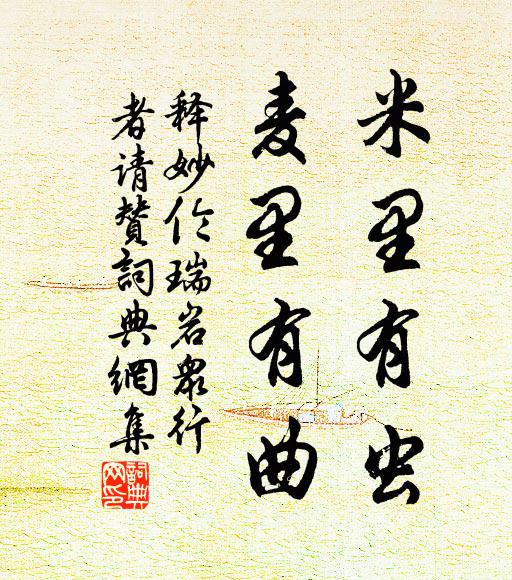 米里有虫
麦里有曲
释妙伦瑞岩众行
者请赞词典网集
词典
网印